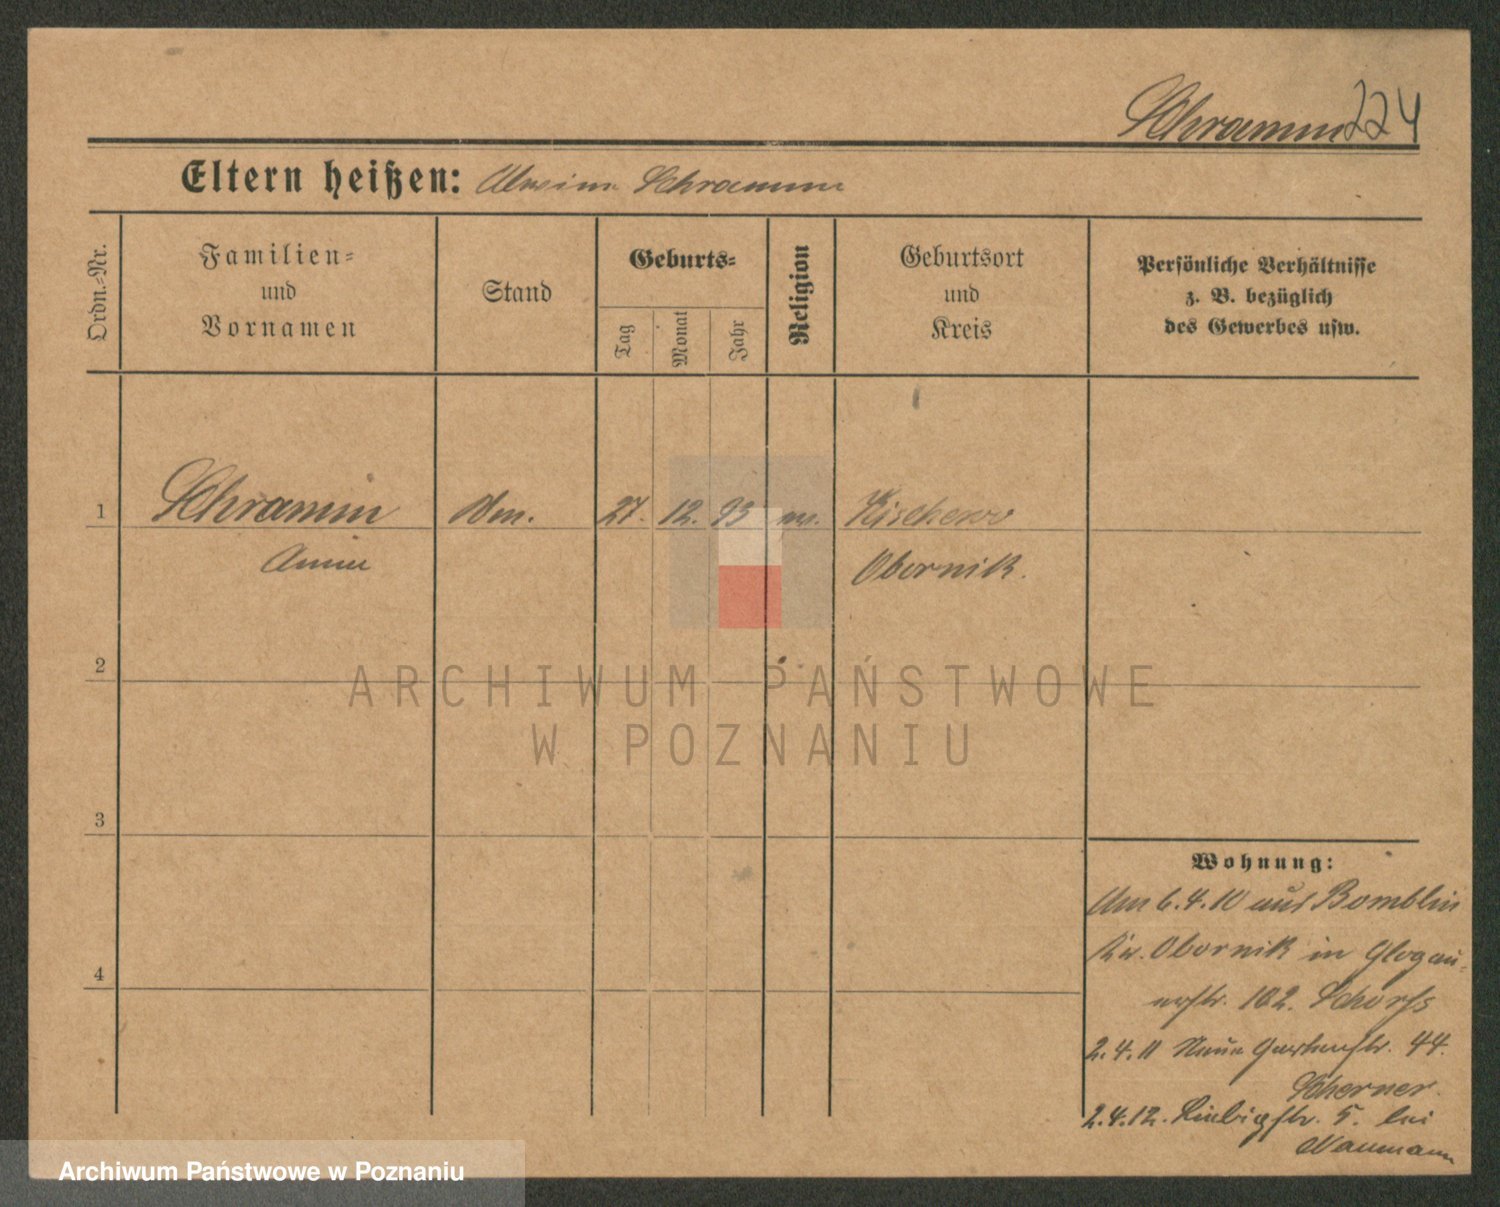 Schramm 224
Eltern heißen: Schramm
Ordn.-Nr.
Familien-
und
Vornamen
Stand
Geburts-
Tag
Monat
Jahr
Religion
Geburtsort
und
Kreis
Persönliche Verhältnisse
z. B. bezüglich
des Gewerbes usw.
1 Schramm 27. 12. 93 Kischewo
Obornik.
2
3
4
Wohnung:
Am 6.4.10 aus Bomblin
Kr. Obornik in Glogau-
erstr. 102.
2.4.11 Neue Gartenstr. 44.
Scherner.
2.4.12. Liebigstr. 5. bei
Naumann
ARCHIWUM PAŃSTWOWE
W POZNANIU
Archiwum Państwowe w Poznaniu